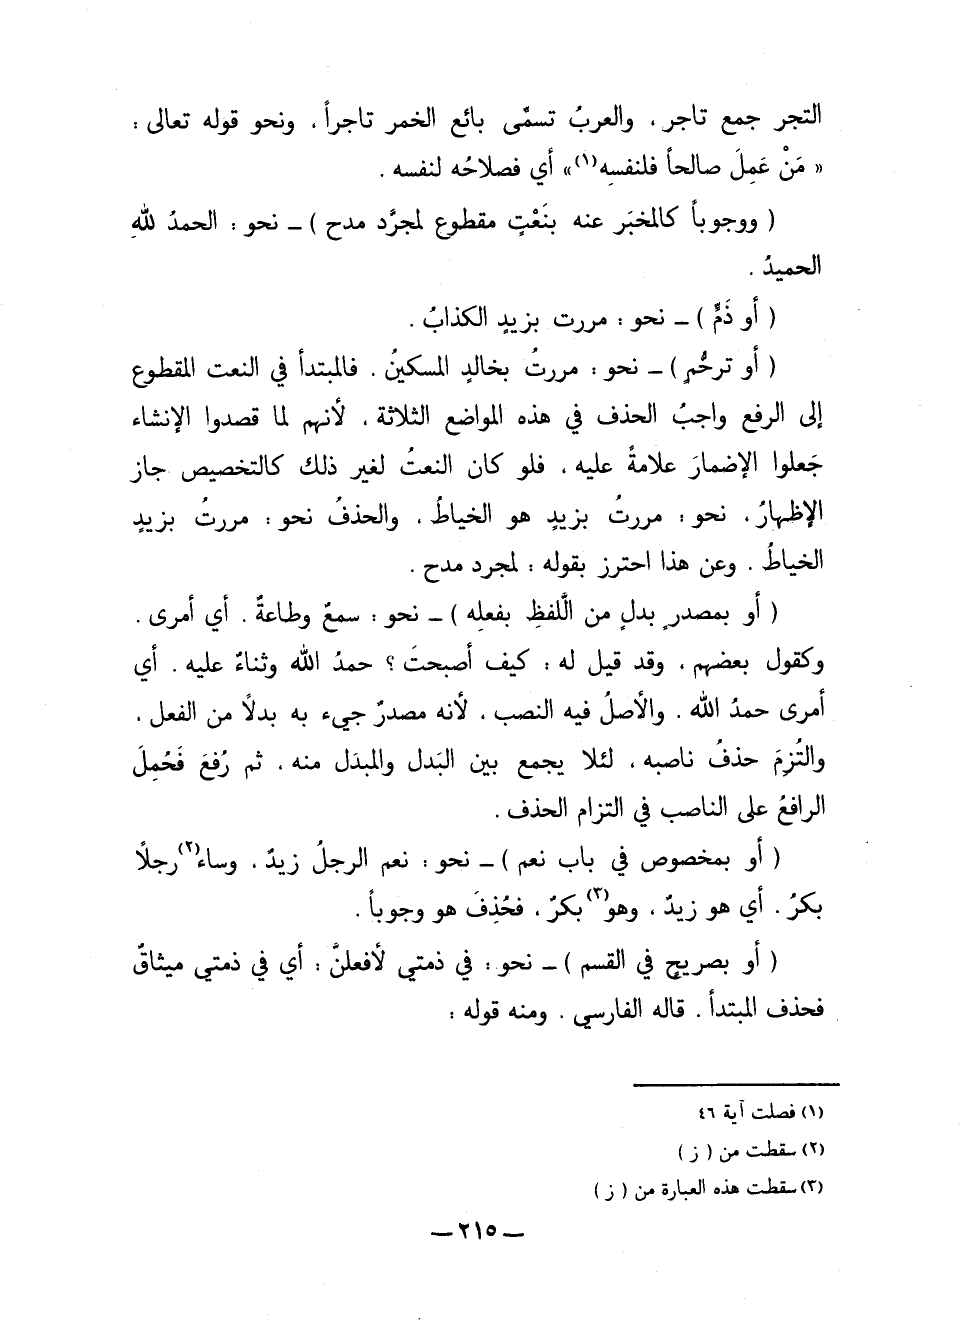 التجر جمع تاجر ، والعربُ تسمّى بائع الخمر تاجراً ، ونحو قوله تعالى :
« مَنْ عَمِلَ صالحاً فلنفسِه(١) » أي فصلاحُه لنفسه .
( ووجوباً كالمخبَر عنه بنَعْتٍ مقطوع لمجرَّد مدح ) ــ نحو : الحمدُ للهِ
الحميدُ .
( أو ذَمٍّ ) ــ نحو : مررت بزيدٍ الكذابُ .
( أو ترحُّمٍ ) ــ نحو : مررتُ بخالدٍ المسكينُ . فالمبتدأ في النعت المقطوع
إلى الرفع واجبُ الحذف في هذه المواضع الثلاثة ، لأنهم لما قصدوا الإنشاء
جَعلوا الإضمارَ علامةً عليه ، فلو كان النعتُ لغير ذلك كالتخصيص جاز
الإظهارُ ، نحو : مررتُ بزيدٍ هو الخياطُ ، والحذفُ نحو : مررتُ بزيدٍ
الخياطُ . وعن هذا احترز بقوله : لمجرد مدح .
( أو بمصدرٍ بدلٍ من الَّلفظِ بفعلِه ) ــ نحو : سمعٌ وطاعةٌ . أي أمرى .
وكقول بعضهم ، وقد قيل له : كيف أصبحتَ ؟ حمدُ الله وثناءٌ عليه . أي
أمرى حمدُ الله . والأصلُ فيه النصب ، لأنه مصدرٌ جيء به بدلاً من الفعل ،
والتُزِمَ حذفُ ناصبه ، لئلا يجمع بين البَدل والمبدَل منه ، ثم رُفعَ فَحُمِلَ
الرافعُ على الناصب في التزام الحذف .
( أو بمخصوص في باب نعم ) ــ نحو : نعم الرجلُ زيدٌ ، وساء(٢) رجلاً
بكرٌ . أي هو زيدٌ ، وهو(٣) بكرٌ ، فحُذِفَ هو وجوباً .
( أو بصريحٍ في القسم ) ــ نحو : في ذمتي لأفعلنَّ : أي في ذمتي ميثاقٌ
فحذف المبتدأ . قاله الفارسي . ومنه قوله :
(١) فصلت آية ٤٦
(٢) سقطت من ( ز )
(٣) سقطت هذه العبارة من ( ز )
— ٢١٥ —